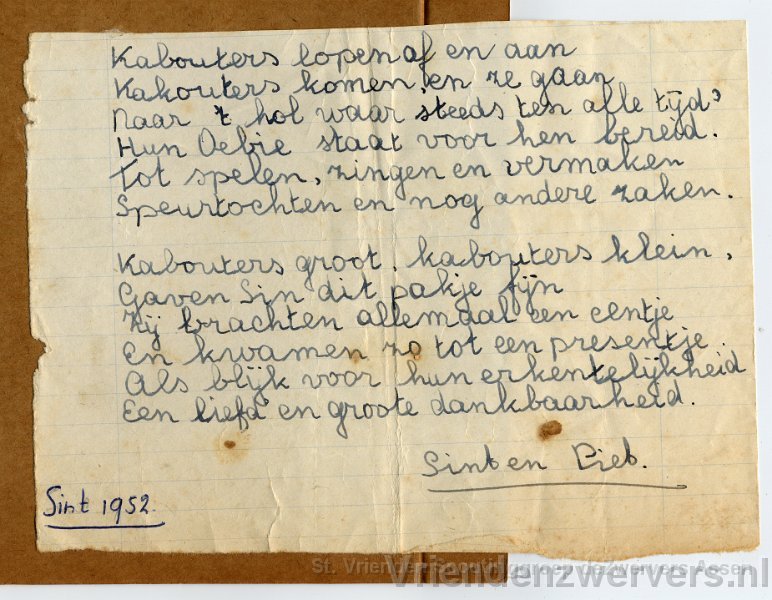 Kabouters lopen af en aan
Kakouters komen, en ze gaan
Naar 't hol waar steeds ten alle tijd
Hun Oebie staat voor hen bereid.
Tot spelen, zingen en vermaken
Speurtochten en nog andere zaken.
Kabouters groot, kabouters klein,
Gaven Sin dit pakje fijn
Zij brachten allemaal een centje
En kwamen zo tot een presentje.
Als blijk voor hun erkentelijkheid
Een liefd' en groote dankbaarheid.
Sint en Piet.
Sint 1952.
St. Vrienden Scoutinggroep de Zwervers Assen
Vriendenzwervers.nl